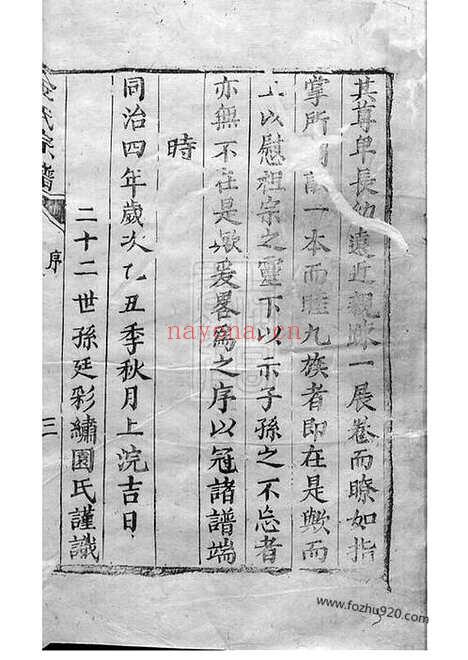 其尊卑長幼遠近親疎一展卷而瞭如指
掌所謂敦一本而睦九族者即在是歟而
上以慰祖宗之靈下以示子孫之不忘者
亦無不在是歟爰畧為之序以冠諸譜端
時
同治四年歲次乙丑季秋月上浣吉日
二十二世孫廷彩繡園氏謹識
氏宗譜
序
三
nayona.cn
www.fozhu920.com